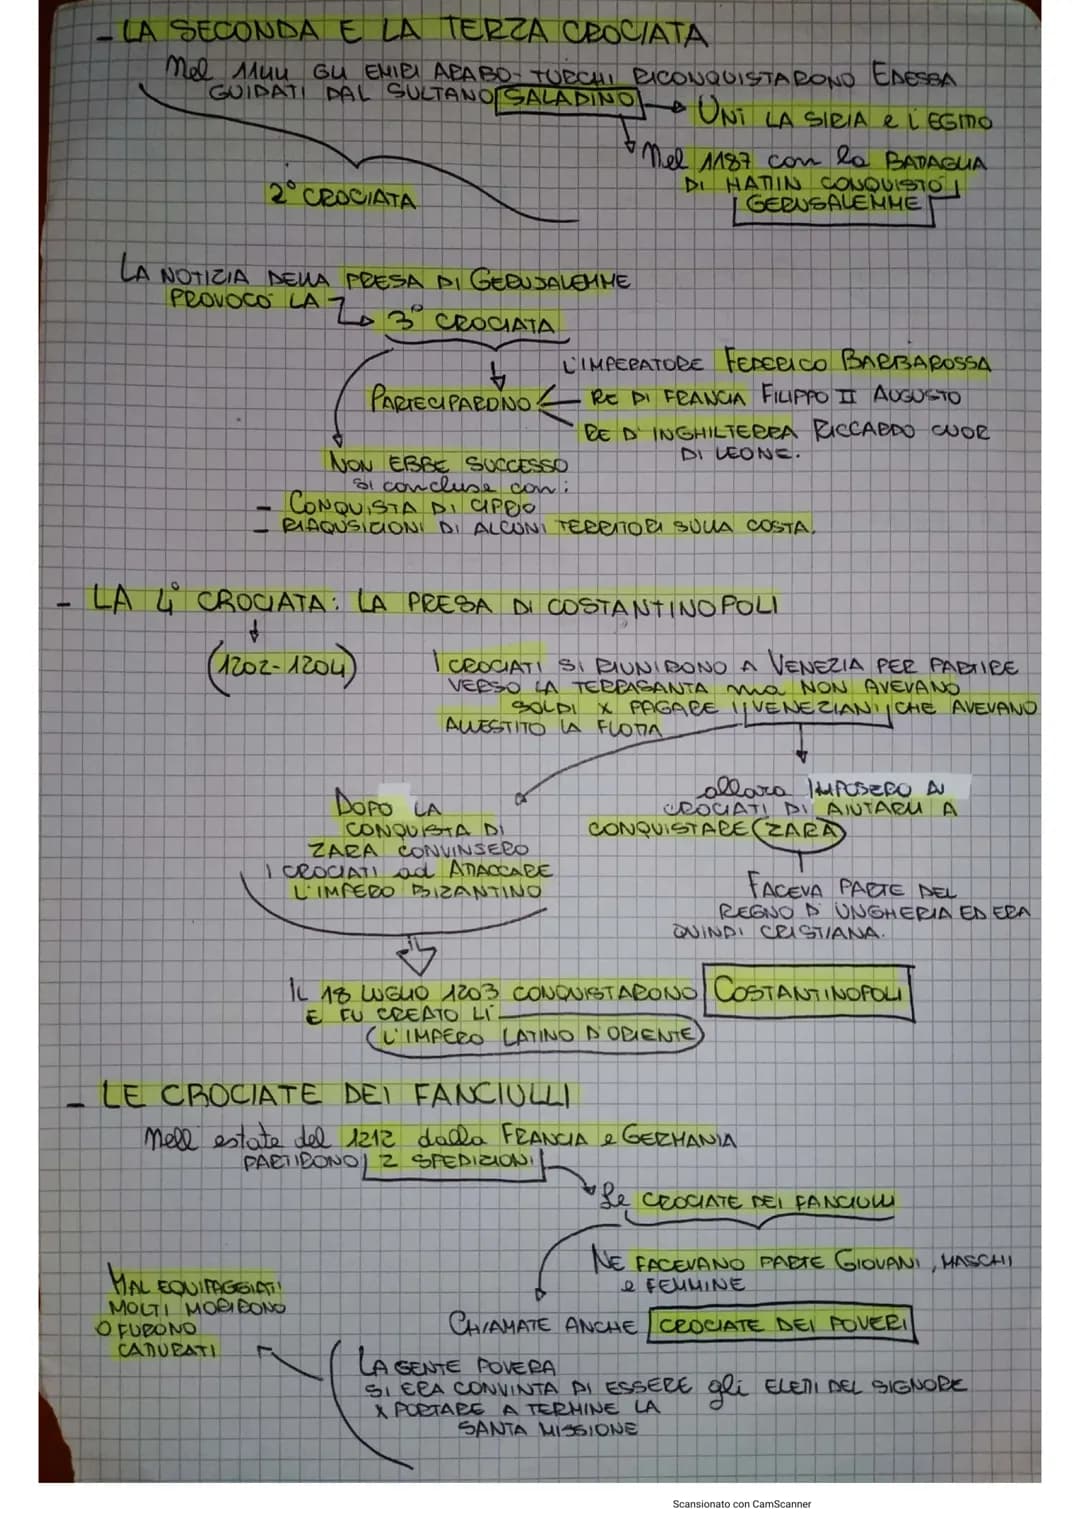 - LA SECONDA E LA TERZA CROCIATA
Nel 1144 GLI EMIRI ARABO-TURCHI RICONQUISTARONO EDESSA
GUIDATI DAL SULTANO SALADINO
UNÌ LA SIRIA e L'EGITTO
Nel 1187 con la BATTAGLIA
DI HATTIN CONQUISTÒ
GERUSALEMME
2° CROCIATA
LA NOTIZIA DELLA PRESA DI GERUSALEMME
PROVOCÒ LA
3° CROCIATA
L'IMPERATORE FEDERICO BARBAROSSA
PARTECIPARONO
RE DI FRANCIA FILIPPO II AUGUSTO
RE D'INGHILTERRA RICCARDO CUOR
DI LEONE.
NON EBBE SUCCESSO
si concluse con:
- CONQUISTA DI CIPRO
- RIAQUSICIONI DI ALCUNI TERRITORI SULLA COSTA.
- LA 4° CROCIATA: LA PRESA DI COSTANTINOPOLI
(1202-1204)
I CROCIATI SI RIUNIRONO A VENEZIA PER PARTIRE
VERSO LA TERRASANTA ma NON AVEVANO
SOLDI X PAGARE I VENEZIANI CHE AVEVANO
ALLESTITO LA FLOTTA
allora IMPOSERO AI
CROCIATI DI AIUTARLI A
CONQUISTARE ZARA
DOPO LA
CONQUISTA DI
ZARA CONVINSERO
I CROCIATI ad ATTACCARE
L'IMPERO BIZANTINO
FACEVA PARTE DEL
REGNO D'UNGHERIA ED ERA
QUINDI CRISTIANA.
IL 18 LUGLIO 1203 CONQUISTARONO COSTANTINOPOLI
E FU CREATO LÌ
L'IMPERO LATINO D'ORIENTE
- LE CROCIATE DEI FANCIULLI
Nell'estate del 1212 dalla FRANCIA e GERMANIA
PARTIRONO 2 SPEDIZIONI
Le CROCIATE DEI FANCIULLI
NE FACEVANO PARTE GIOVANI, MASCHI
e FEMMINE
CHIAMATE ANCHE CROCIATE DEI POVERI
MAL EQUIPAGGIATI
MOLTI MORIRONO
O FURONO
CATTURATI
LA GENTE POVERA
SI ERA CONVINTA DI ESSERE gli ELETTI DEL SIGNORE
X PORTARE A TERMINE LA
SANTA MISSIONE
Scansionato con CamScanner